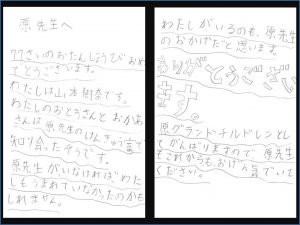 原先生へ
77さいのおたんじょうび おめ
でとうございます。
わたしは山本樹奈です。
わたしのおとうさんと おかあ
さんは原先生のけんきゅう室で
知り合ったそうです。
原先生がいなければ わた
しもうまれていなかったのかも
しれません。
わたしがいるのも、原先生
のおかげだと思います。
ありがとうござい
ます。
原グランドチルドレンとし
てがんばりますので 原先生
もこれからも、おげん気でいて
ください。